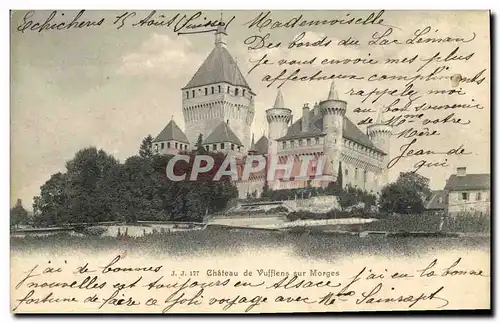 Echichens 15 Août (Suisse)
Mademoiselle
Des bords du Lac Léman
je vous envoie mes plus
affectueux compliments
rappelez moi
au bon souvenir
de votre
Mère
Jeanne de
CPARAMA
J. J. 177 Château de Vufflens sur Morges
j'ai de bonnes
nouvelles
j'ai eu la bonne
fortune de faire toujours joli voyage avec Mme